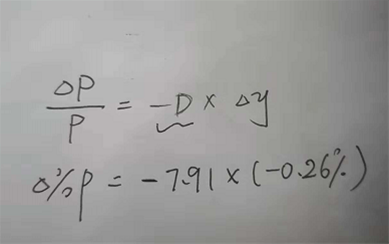 ΔP/P = -D × Δy
Δ%P = -7.91 × (-0.26%)